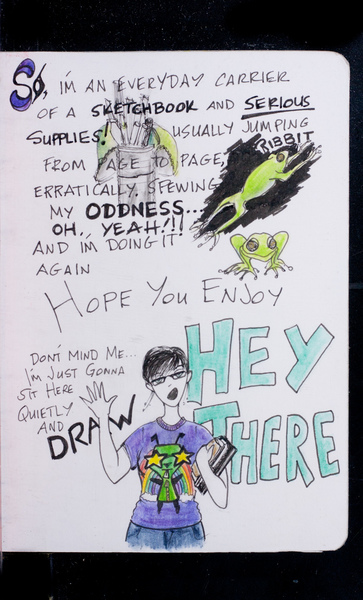 So, I'M AN EVERYDAY CARRIER
OF A SKETCHBOOK AND SERIOUS
SUPPLIES! USUALLY JUMPING
RIBBIT
FROM PAGE TO PAGE,
ERRATICALLY, SPEWING
MY ODDNESS...
OH, YEAH!!!
AND I'M DOING IT
AGAIN
HOPE YOU ENJOY
HEY
THERE
DON'T MIND ME...
I'M JUST GONNA
SIT HERE
QUIETLY
AND
DRAW